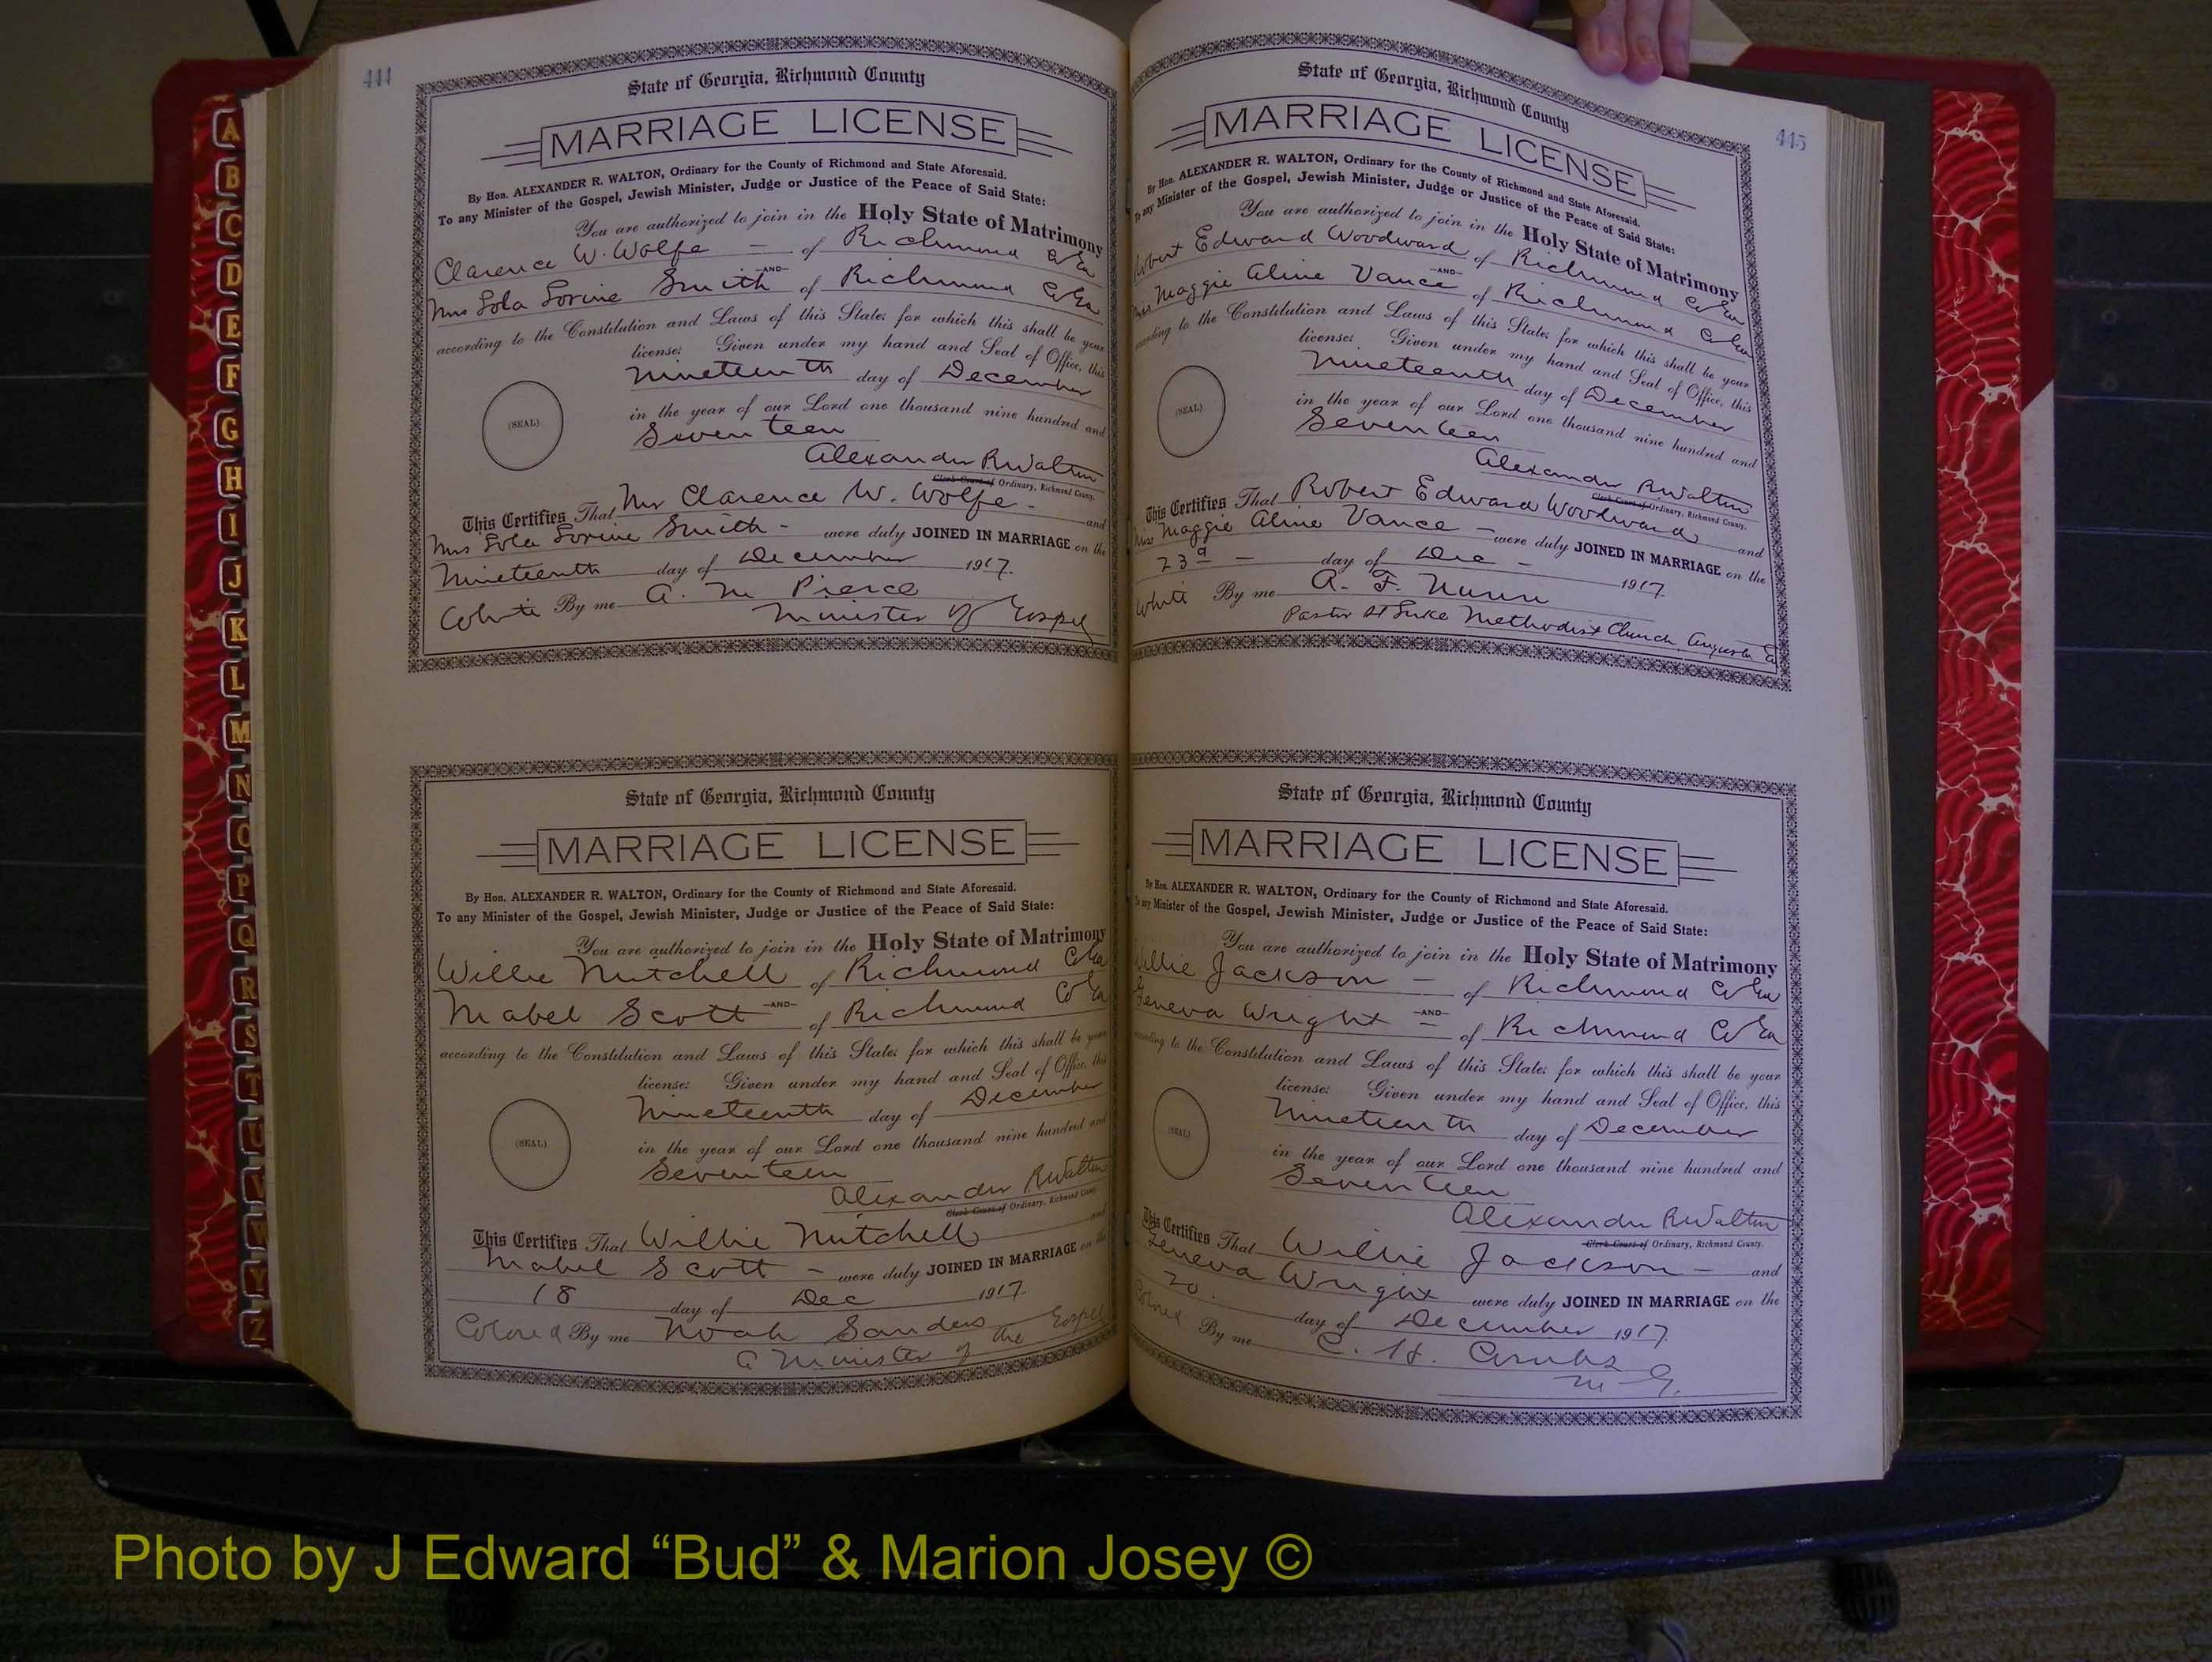 A
B
C
D
E
F
G
H
I
J
K
L
M
N
O
P
Q
R
S
T
U
V
W
Y
Z
444
State of Georgia, Richmond County
MARRIAGE LICENSE
By Hon. ALEXANDER R. WALTON, Ordinary for the County of Richmond and State Aforesaid.
To any Minister of the Gospel, Jewish Minister, Judge or Justice of the Peace of Said State:
You are authorized to join in the Holy State of Matrimony
Clarence W. Wolfe — of Richmond Co Ga
—AND—
Mrs Lola Lorine Smith of Richmond Co Ga
according to the Constitution and Laws of this State; for which this shall be your
license: Given under my hand and Seal of Office, this
nineteenth day of December
(SEAL)
in the year of our Lord one thousand nine hundred and
Seventeen
Alexander R Walton
Clerk Court of Ordinary, Richmond County.
This Certifies That Mr Clarence W. Wolfe - and
Mrs Lola Lorine Smith - were duly JOINED IN MARRIAGE on the
Nineteenth day of December 1917.
White By me A. M Pierce
Minister of Gospel
State of Georgia, Richmond County
MARRIAGE LICENSE
By Hon. ALEXANDER R. WALTON, Ordinary for the County of Richmond and State Aforesaid.
To any Minister of the Gospel, Jewish Minister, Judge or Justice of the Peace of Said State:
You are authorized to join in the Holy State of Matrimony
Willie Mitchell of Richmond Co Ga
—AND—
Mabel Scott of Richmond Co Ga
according to the Constitution and Laws of this State; for which this shall be your
license: Given under my hand and Seal of Office, this
Nineteenth day of December
(SEAL)
in the year of our Lord one thousand nine hundred and
Seventeen
Alexander R Walton
Clerk Court of Ordinary, Richmond County.
This Certifies That Willie Mitchell and
Mabel Scott - were duly JOINED IN MARRIAGE on the
18 day of Dec 1917.
Colored By me Noah Sanders
a Minister of the Gospel
445
State of Georgia, Richmond County
MARRIAGE LICENSE
By Hon. ALEXANDER R. WALTON, Ordinary for the County of Richmond and State Aforesaid.
To any Minister of the Gospel, Jewish Minister, Judge or Justice of the Peace of Said State:
You are authorized to join in the Holy State of Matrimony
Robert Edward Woodward of Richmond Co Ga
—AND—
Miss Maggie Aline Vance of Richmond Co Ga
according to the Constitution and Laws of this State; for which this shall be your
license: Given under my hand and Seal of Office, this
Nineteenth day of December
(SEAL)
in the year of our Lord one thousand nine hundred and
Seventeen
Alexander R Walton
Clerk Court of Ordinary, Richmond County.
This Certifies That Robert Edward Woodward and
Miss Maggie Aline Vance - were duly JOINED IN MARRIAGE on the
23d - day of Dec - 1917.
White By me A. F. Nunn
Pastor St Luke Methodist Church, Augusta Ga
State of Georgia, Richmond County
MARRIAGE LICENSE
By Hon. ALEXANDER R. WALTON, Ordinary for the County of Richmond and State Aforesaid.
To any Minister of the Gospel, Jewish Minister, Judge or Justice of the Peace of Said State:
You are authorized to join in the Holy State of Matrimony
Willie Jackson — of Richmond Co Ga
—AND—
Geneva Wright — of Richmond Co Ga
according to the Constitution and Laws of this State; for which this shall be your
license: Given under my hand and Seal of Office, this
Nineteenth day of December
(SEAL)
in the year of our Lord one thousand nine hundred and
Seventeen
Alexander R Walton
Clerk Court of Ordinary, Richmond County.
This Certifies That Willie Jackson - and
Geneva Wright were duly JOINED IN MARRIAGE on the
20 day of December 1917.
Colored By me C. H.
M G.
Photo by J Edward “Bud” & Marion Josey ©